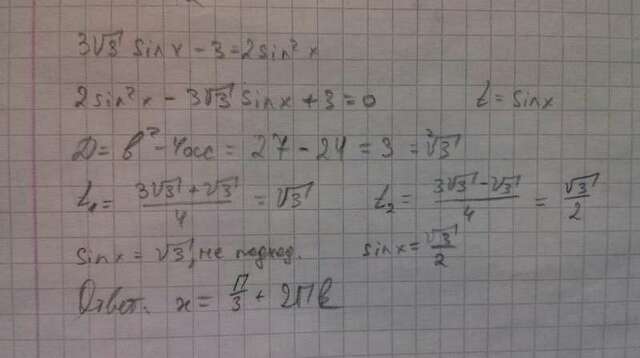 3√3 sin x − 3 = 2sin²x
2sin²x − 3√3 sinx + 3 = 0 t = sinx
D = b² − 4ac = 27 − 24 = 3 = √3²
t₁ = (3√3 + √3)/4 = √3 t₂ = (3√3 − √3)/4 = √3/2
sinx = √3, не подход. sinx = √3/2
Ответ: x = π/3 + 2πk